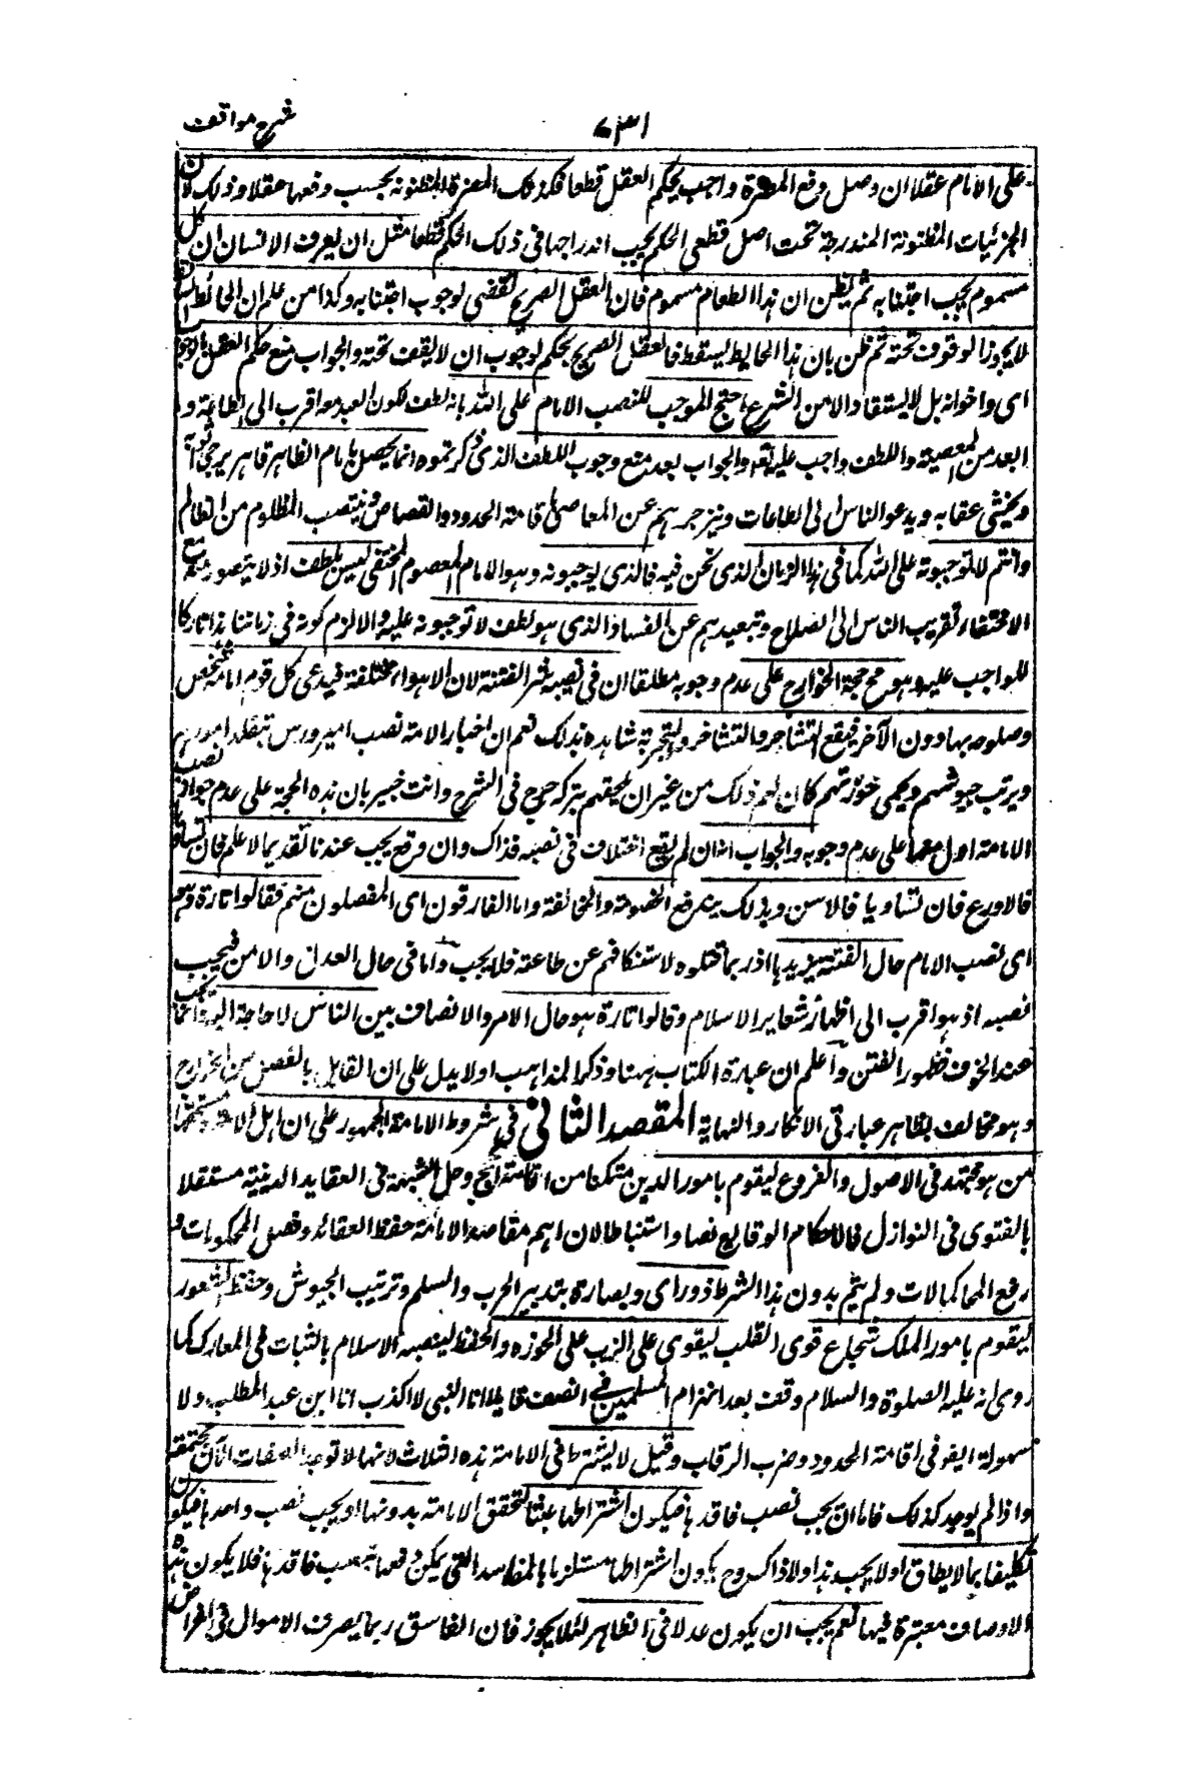 شرح مواقف
٧٣١
على الامام عقلا ان اصل دفع المضرة واجب بحكم العقل قطعا فكذلك المضرة المظنونة يجب دفعها عقلا وذلك لان
الجزئيات المظنونة المندرجة تحت اصل قطعى الحكم يجب اندراجها فى ذلك الحكم قطعا مثل ان يعرف الانسان ان كل
مسموم يجب اجتنابه ثم يظن ان هذا الطعام مسموم فان العقل الصريح يقضى لوجوب اجتنابه وكذا من علم ان الحائط الساقط
لا يجوز الوقوف تحته ثم ظن بان هذا الحايط يسقط فالعقل الصريح يحكم لوجوب ان لا يقف تحته والجواب منع حكم العقل بالوجوب
اى واخوانه بل لا يستفاد الا من الشرع احتج الموجب لنصب الامام على الله بانه لطف لكون العبد معه اقرب الى الطاعة و
ابعد من المعصية واللطف واجب عليه تعالى والجواب بعد منع وجوب اللطف الذى ذكرتموه انما يحصل بامام الظاهر قاهر يرجى ثوابه
ويخشى عقابه ويدعو الناس الى الطاعات ويزجرهم عن المعاصى باقامة الحدود والقصاص وينتصب المظلوم من الظالم
وانتم لا توجبونه على الله كما فى هذا الزمان الذى نحن فيه فالذى يوجبونه وهو الامام المعصوم المختفى ليس بلطف اذ لا يتصور منه مع
الاختفاء تقريب الناس الى الصلاح وتبعيدهم عن الفساد والذى هو لطف لا توجبونه عليه والا لزم كونه فى زماننا هذا تاركا
للواجب عليه وهو مح حجة الخوارج على عدم وجوبه مطلقا ان فى نصبه شر الفتنة لان الاهواء مختلفة فيدعى كل قوم امامة شخص
وصلوحه بها دون الآخر فيقع التشاجر والتشاخر والتجربة شاهدة بذلك نعم ان اختار الامة نصب امير ورئيس يتقلد امورهم
ويرتب جيوشهم ويحمى حوزتهم كان لهم ذلك من غير ان يلحقهم بتركه حرج فى الشرع وانت خبير بان هذه الحجة على عدم جواز نصب
الامامة اول منها على عدم وجوبه والجواب انه ان لم يقع اختلاف فى نصبه فذاك وان وقع يجب عندنا تقديم الاعلم فان تساويا
فالاورع فان تساويا فالاسن وبذلك يندفع الخصومة والمخالفة واما الفارقون اى المفصلون منهم فقالوا تارة هو
اى نصب الامام حال الفتنة يزيدها اذ ربما قتلوه لاستنكافهم عن طاعته فلا يجب واما فى حال العدل والامن فيجب
نصبه اذ هو اقرب الى اظهار شعاير الاسلام وقالوا تارة هو حال الامر والانصاف بين الناس لا حاجة اليه وانما يجب
عند الخوف وظهور الفتن واعلم ان عبارة الكتاب ههنا وذكر المذاهب اولا يدل على ان القايل بالفصل من الخوارج
وهو مخالف بظاهر عبارتى الابكار والنهاية المقصد الثانى فى شروط الامامة الجمهور على ان اهل الامامة ومستحقها
من هو مجتهد فى الاصول والفروع ليقوم بامور الدين متمكنا من اقامة الحجج وحل الشبهة فى العقايد الدينية مستقلا
بالفتوى فى النوازل والاحكام الوقايع نصا واستنباطا لان اهم مقاصد الامامة حفظ العقائد وفصل الحكومات و
رفع المخاصمات ولم يتم بدون هذا الشرط ذو راى وبصارة بتدبير الحرب والسلم وترتيب الجيوش وحفظ الثغور
ليقوم بامور الملك شجاع قوى القلب ليقوى على الذب على الحوزه والحفظ لبيضة الاسلام بالثبات فى المعارك كما
روى انه عليه الصلوة والسلام وقف بعد انهزام المسلمين فى الصف قايلا انا النبى لا اكذب انا ابن عبد المطلب ولا
سهولة ايضا فى اقامة الحدود وضرب الرقاب وقيل لا يشترط فى الامامة هذه الثلاث لانها لا توجد الصفات الآن مجتمعة
واذا لم يوجد كذلك فاما ان يجب نصب فاقدها فيكون اشتراطها عبثا لتحقق الامامة بدونها او يجب نصب واحدها فيكون
تكليفا بما لا يطاق او لا يجب هذا ولا ذاك وح يكون اشتراطها مستلزما بالمفاسد التى يمكن دفعها بنصب فاقدها فلا يكون هذه
الاوصاف معتبرة فيها نعم يجب ان يكون عدلا فى الظاهر لئلا يجوز فان الفاسق ربما يصرف الاموال فى اغراض